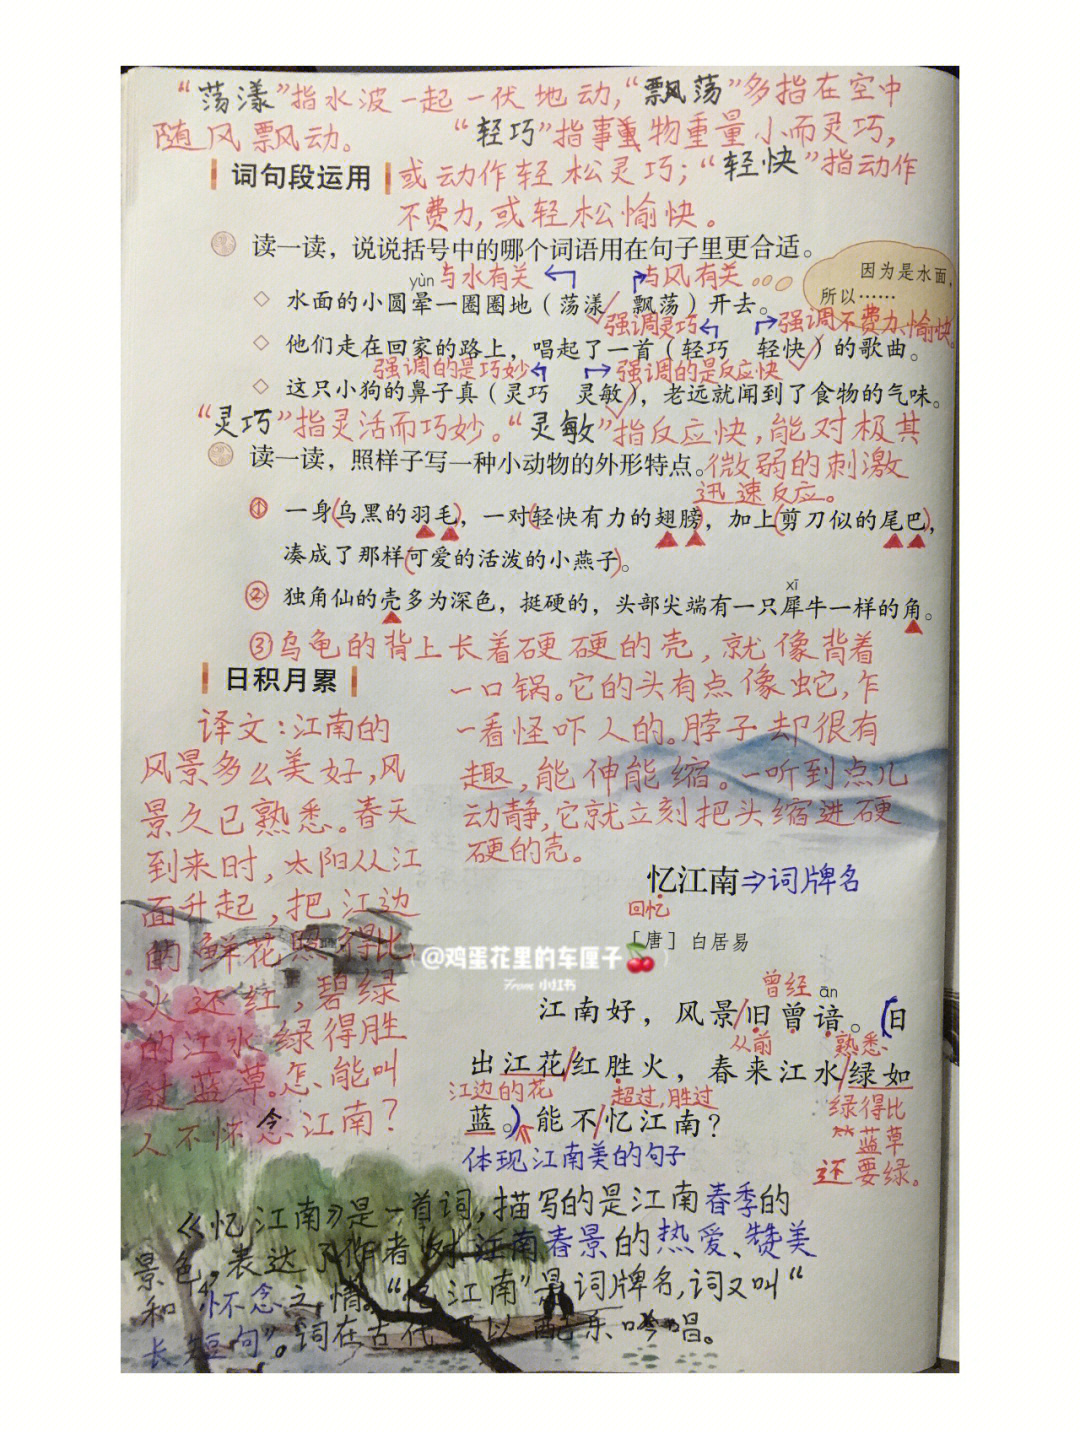 “荡漾”指水波一起一伏地动,“飘荡”多指在空中
随风飘动。 “轻巧”指事物重量小而灵巧,
词句段运用 或动作轻松灵巧;“轻快”指动作
不费力,或轻松愉快。
读一读，说说括号中的哪个词语用在句子里更合适。
yùn 与水有关 与风有关
因为是水面，
所以……
◇ 水面的小圆晕一圈圈地（荡漾 飘荡）开去。
强调灵巧 强调不费力、愉快。
◇ 他们走在回家的路上，唱起了一首（轻巧 轻快）的歌曲。
强调的是巧妙 强调的是反应快
◇ 这只小狗的鼻子真（灵巧 灵敏），老远就闻到了食物的气味。
“灵巧”指灵活而巧妙。“灵敏”指反应快,能对极其
读一读，照样子写一种小动物的外形特点。微弱的刺激
迅速反应。
① 一身(乌黑的羽毛)，一对(轻快有力的翅膀)，加上(剪刀似的尾巴)，
凑成了那样(可爱的活泼的小燕子)。
xī
② 独角仙的壳多为深色，挺硬的，头部尖端有一只犀牛一样的角。
③乌龟的背上长着硬硬的壳,就像背着
日积月累
一口锅。它的头有点像蛇,乍
一看怪吓人的。脖子却很有
趣,能伸能缩。一听到点儿
动静,它就立刻把头缩进硬
硬的壳。
译文:江南的
风景多么美好,风
景久已熟悉。春天
到来时,太阳从江
面升起,把江边
的鲜花照得比
火还红,碧绿
的江水绿得胜
过蓝草。怎能叫
人不怀念江南?
忆江南⇒词牌名
回忆
［唐］白居易
@鸡蛋花里的车厘子
From 小红书
曾经 ān
江南好，风景/旧曾谙。(日
从前 熟悉
出江花/红胜火，春来江水/绿如
江边的花 超过,胜过
绿得比
蓝。)能不/忆江南？
蓝草
还要绿。
体现江南美的句子
《忆江南》是一首词,描写的是江南春季的
景色,表达了作者对江南春景的热爱、赞美
和怀念之情。“忆江南”是词牌名,词又叫“
长短句”。词在古代可以配乐吟唱。